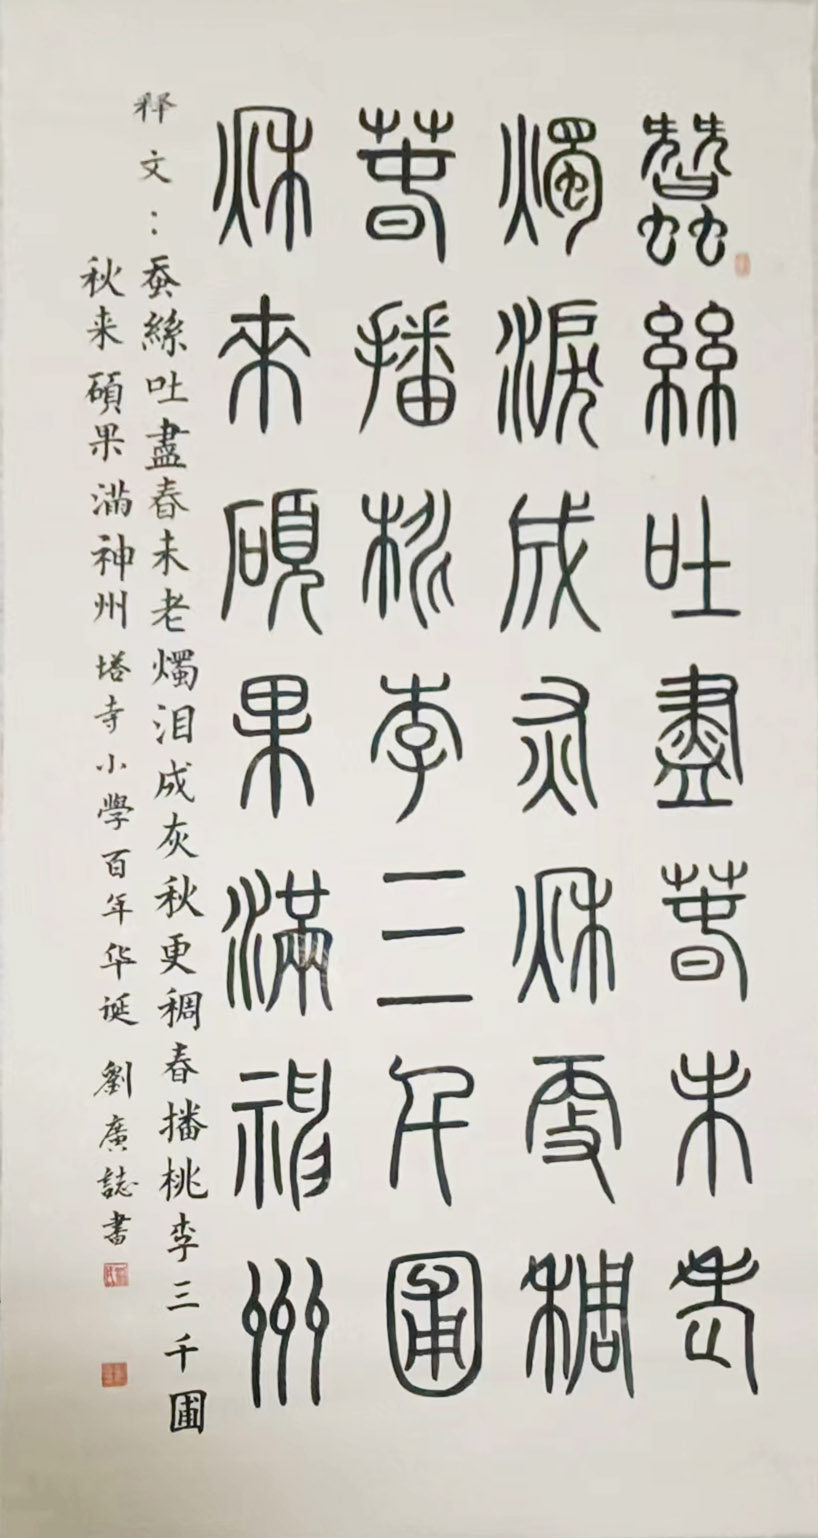 蠶絲吐盡萅未老
燭淚成灰秌更稠
萅播桃李三千圃
秌來碩果滿神州
释文：蚕絲吐盡春未老燭泪成灰秋更稠春播桃李三千圃
秋来碩果滿神州 塔寺小學百年华诞 劉廣誌書